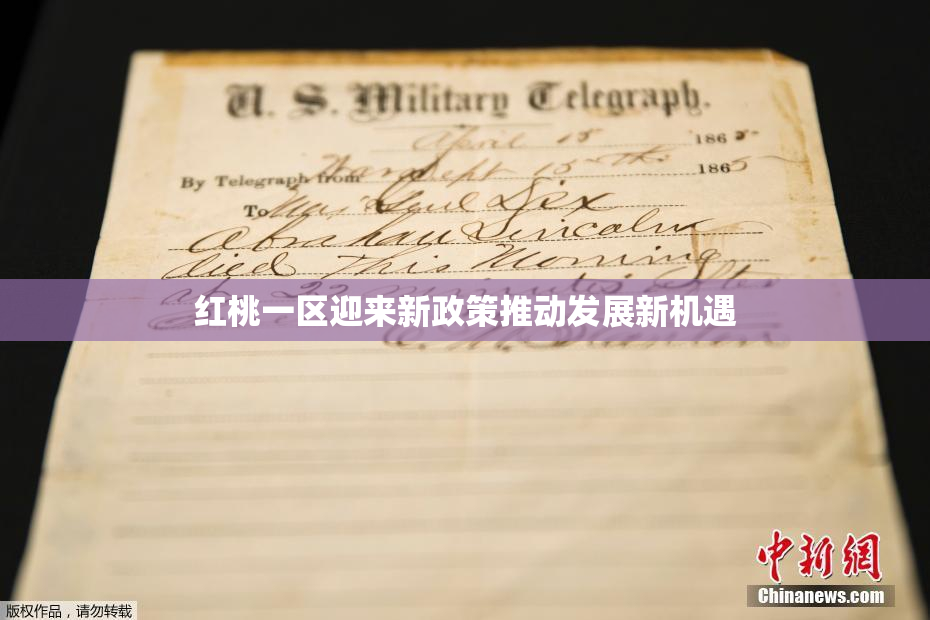 U. S. Military Telegraph.
April 15 1865
By Telegraph from War Dept 15th 1865
To Maj Genl Dix
Abraham Lincoln
died This Morning
at 22 minutes after
红桃一区迎来新政策推动发展新机遇
中新网
Chinanews.com
版权作品，请勿转载